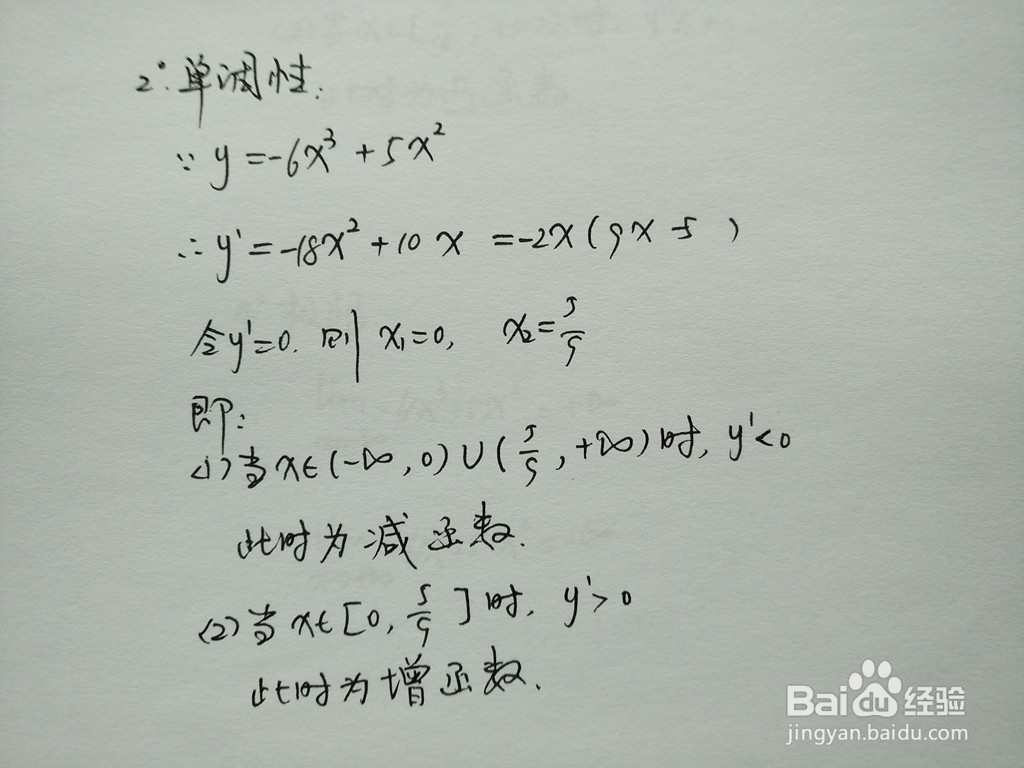 2°.单调性:
∵ y=-6x³+5x²
∴ y'=-18x²+10x =-2x(9x-5)
令y'=0. 则 x₁=0, x₂=5/9
即:
(1)当x∈(-∞,0)∪(5/9,+∞)时, y'<0
此时为减函数.
(2)当x∈[0,5/9]时, y'>0
此时为增函数.
Baidu经验
jingyan.baidu.com